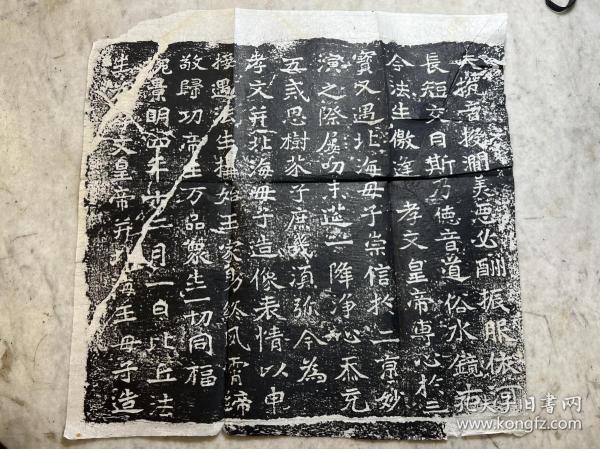 夫抗音投澗美惡必酬振服依河
長短交目斯乃德音道俗水鏡古
今法生儌逢 孝文皇帝專心於三
寶又遇北海母子崇信於二京妙
演之際屢叨末筵一降淨心忝充
五戒思樹芥子庶幾須弥今為
孝文并北海母子造像表情以申
接遇法生構始王家助終夙霄締
敬歸功帝王万品衆生一切同福
魏景明四年十二月一日比丘法
生為孝文皇帝并北海王母子造
孔夫子旧书网
www.kongfz.com